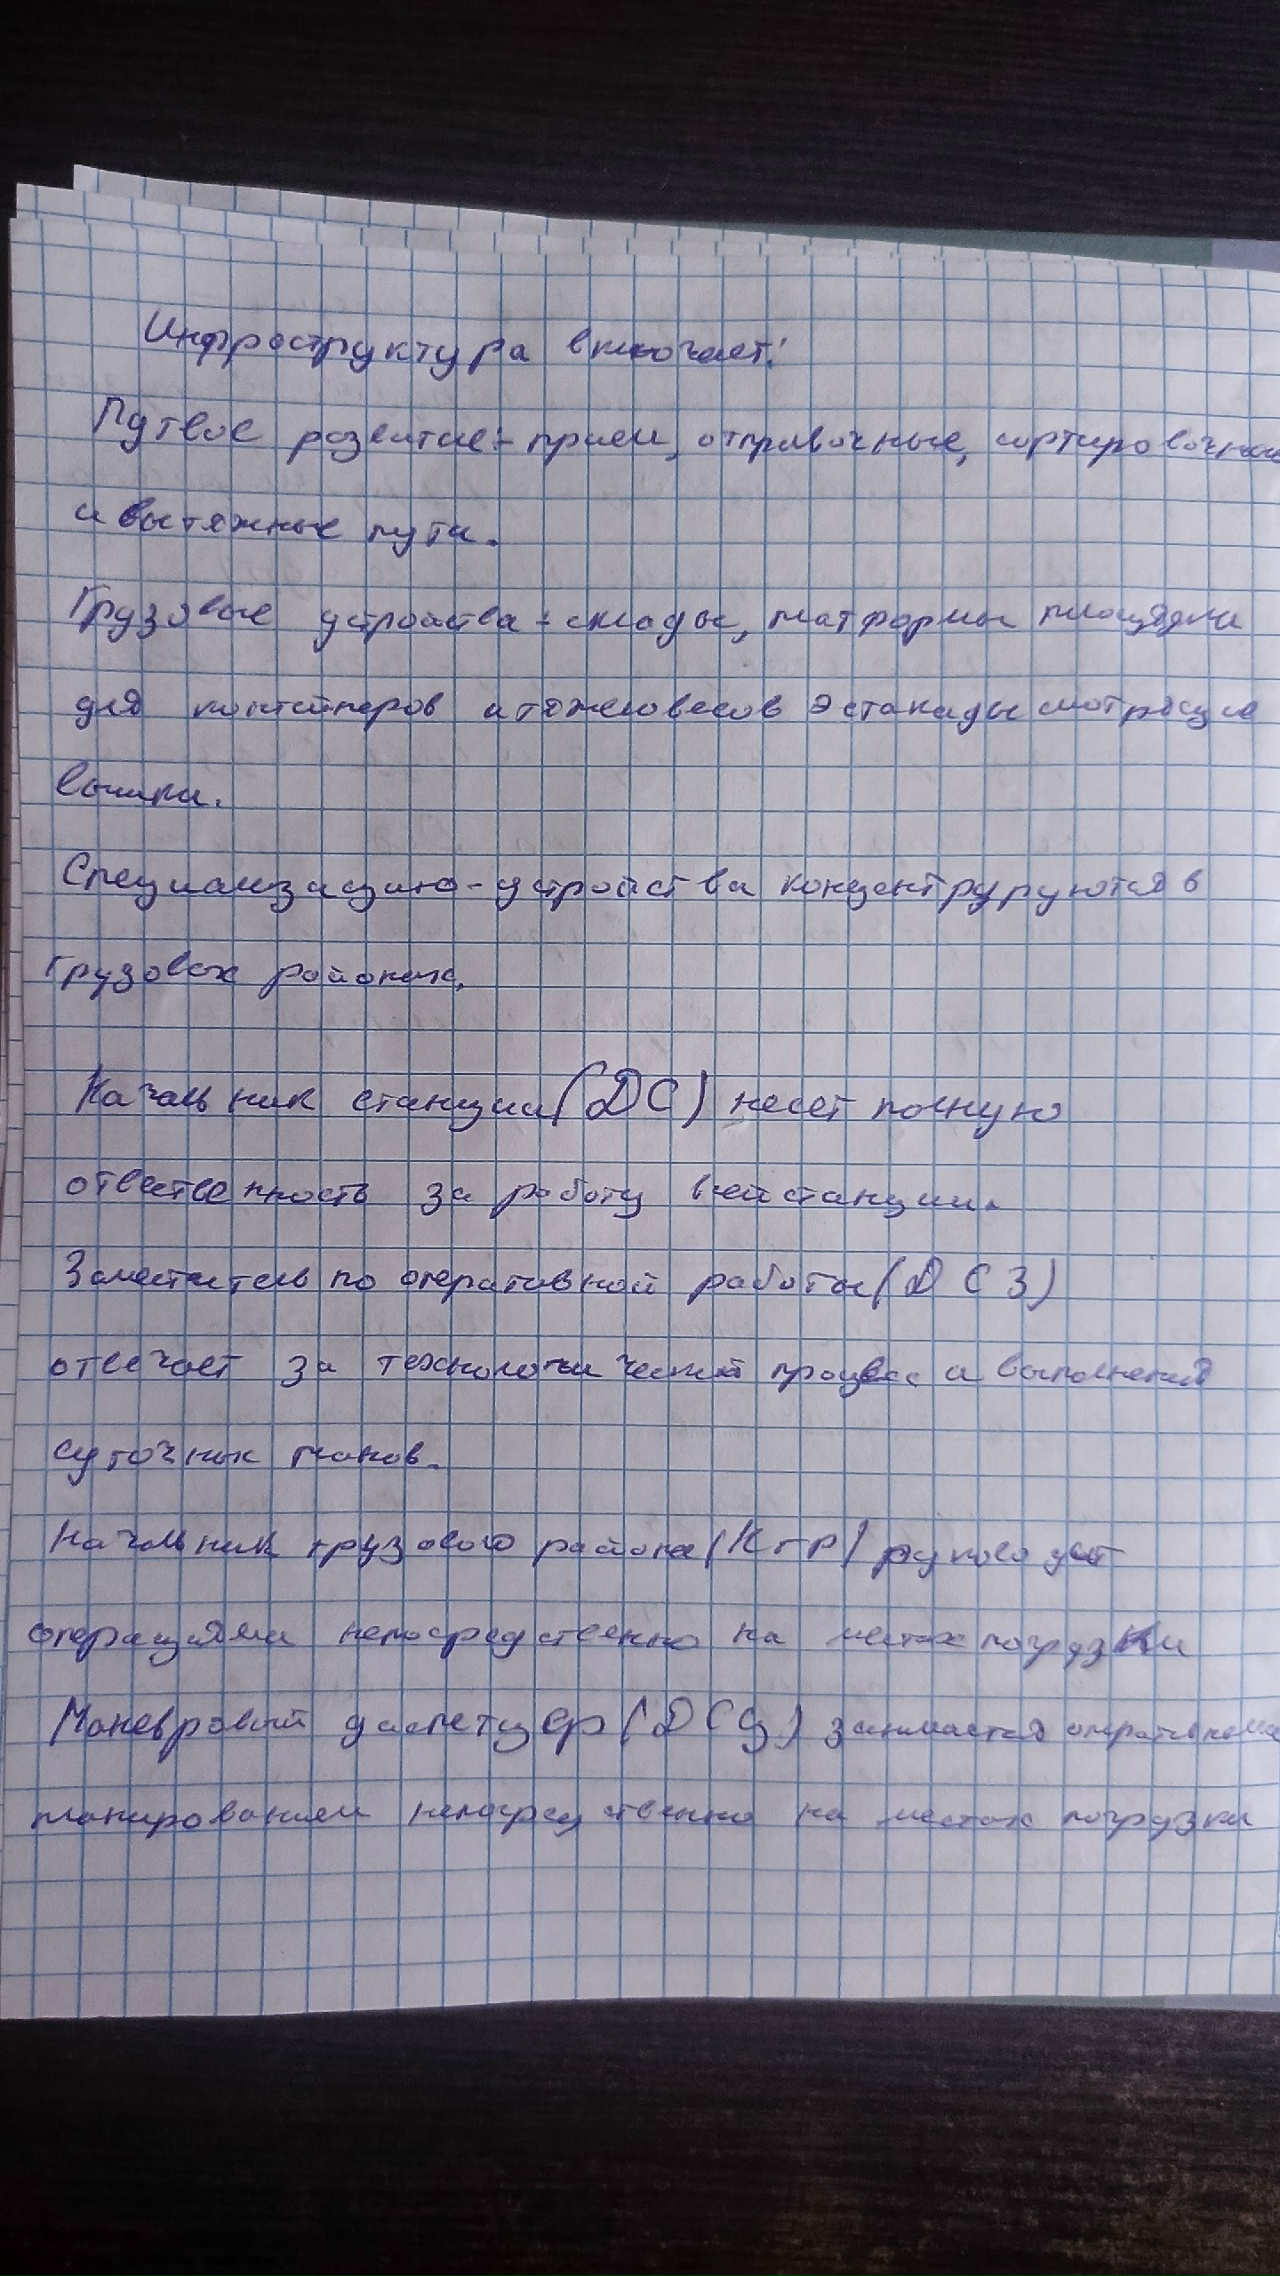 Инфроструктура включает:
Путвое розвитие:- прием, отправочные, сортировочные
и вытяжные пути.
Грузовые устройства:- склады, платформы площядки
для контейнеров и тяжеловесов эстакады смотрящие
вышки.
Специализацию-устройства концентрируются в
грузовых районах.
Начальник станции (ДС) несет полную
отвественность за работу всей станции.
Заместитель по оперативной работы (ДСЗ)
отвечает за технологический процесс и выполнения
суточных планов.
Начальник грузового района (КГР) руководит
операциями непосредственно на местах погрузки
Маневровый диспетчер (ДСЦ) занимается оперативным
планированием непосредственно на местах погрузки